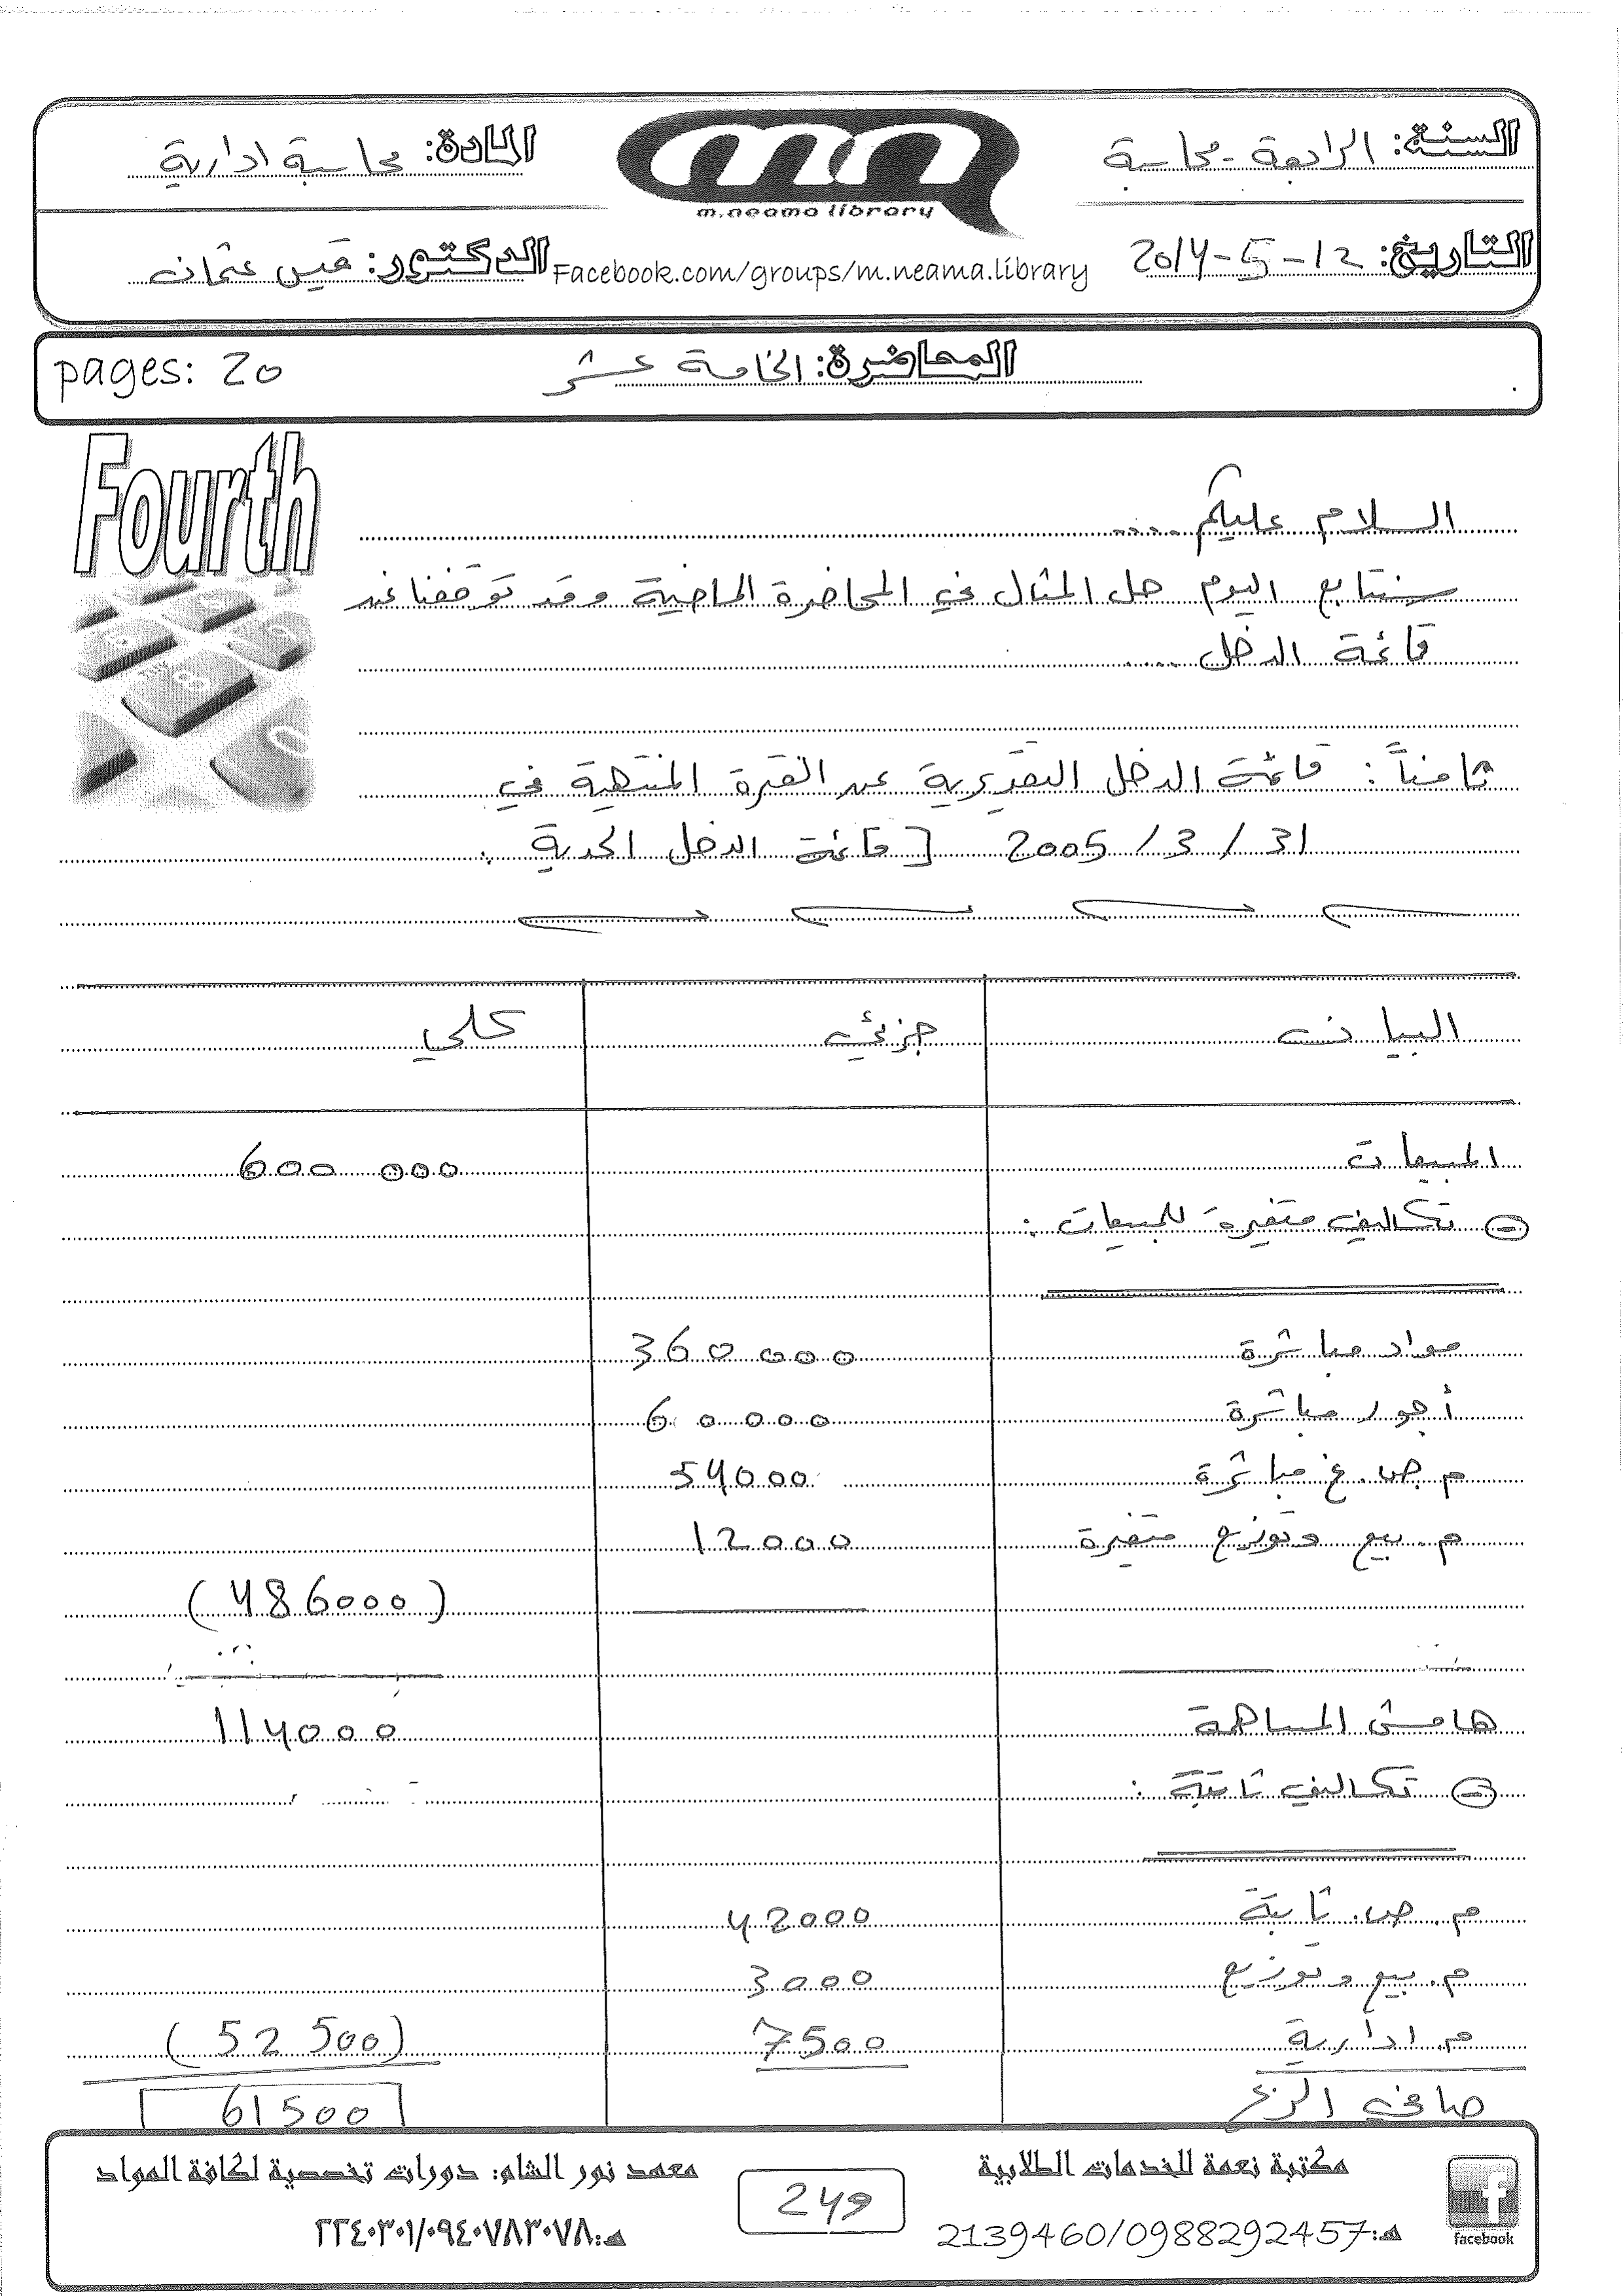 السنة: الرابعة - محاسبة
المادة: محاسبة ادارية
m.neama library
التاريخ: 12-5-2014
Facebook.com/groups/m.neama.library
الدكتور: قيس عثمان
المحاضرة: الخامسة عشر
pages: 20
Fourth
السلام عليكم ....
سنتابع اليوم حل المثال في المحاضرة الماضية وقد توقفنا عند
قائمة الدخل ....
ثامناً: قائمة الدخل التقديرية عن الفترة المنتهية في
31 / 3 / 2005 [ قائمة الدخل الحدية .
البيان جزئي كلي
المبيعات 600 000
⊖ تكاليف متغيرة للمبيعات :
مواد مباشرة 360000
أجور مباشرة 60000
م.ص.غ مباشرة 54000
م. بيع وتوزيع متغيرة 12000
(486000)
هامش المساهمة 114000
⊖ تكاليف ثابتة :
م. ص. ثابتة 42000
م. بيع وتوزيع 3000
م. ادارية 7500 (52 500)
صافي الربح 61500
مكتبة نعمة للخدمات الطلابية
هـ: 2139460/0988292457
249
معهد نور الشام: دورات تخصصية لكافة المواد
هـ: ٢٢٤٠٣٠١/٠٩٤٠٧٨٣٠٧٨
facebook